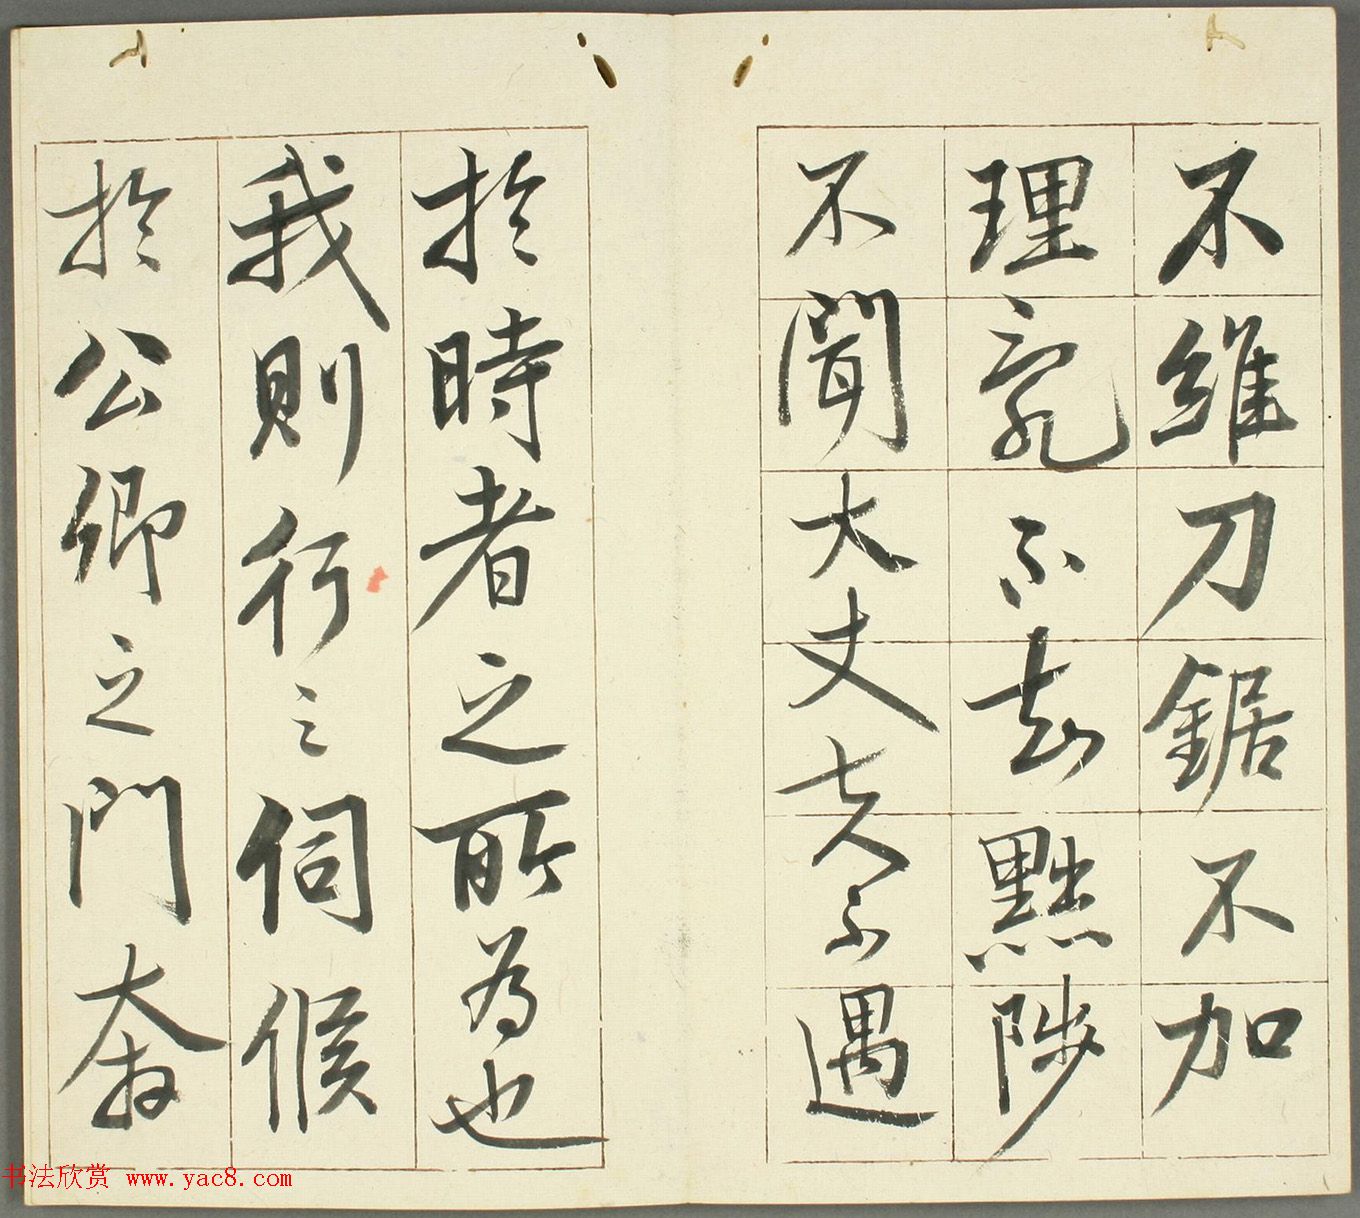 不維刀鋸不加
理亂不知黜陟
不聞大丈夫不遇
於時者之所為也
我則行之伺候
於公卿之門奔
书法欣赏 www.yac8.com